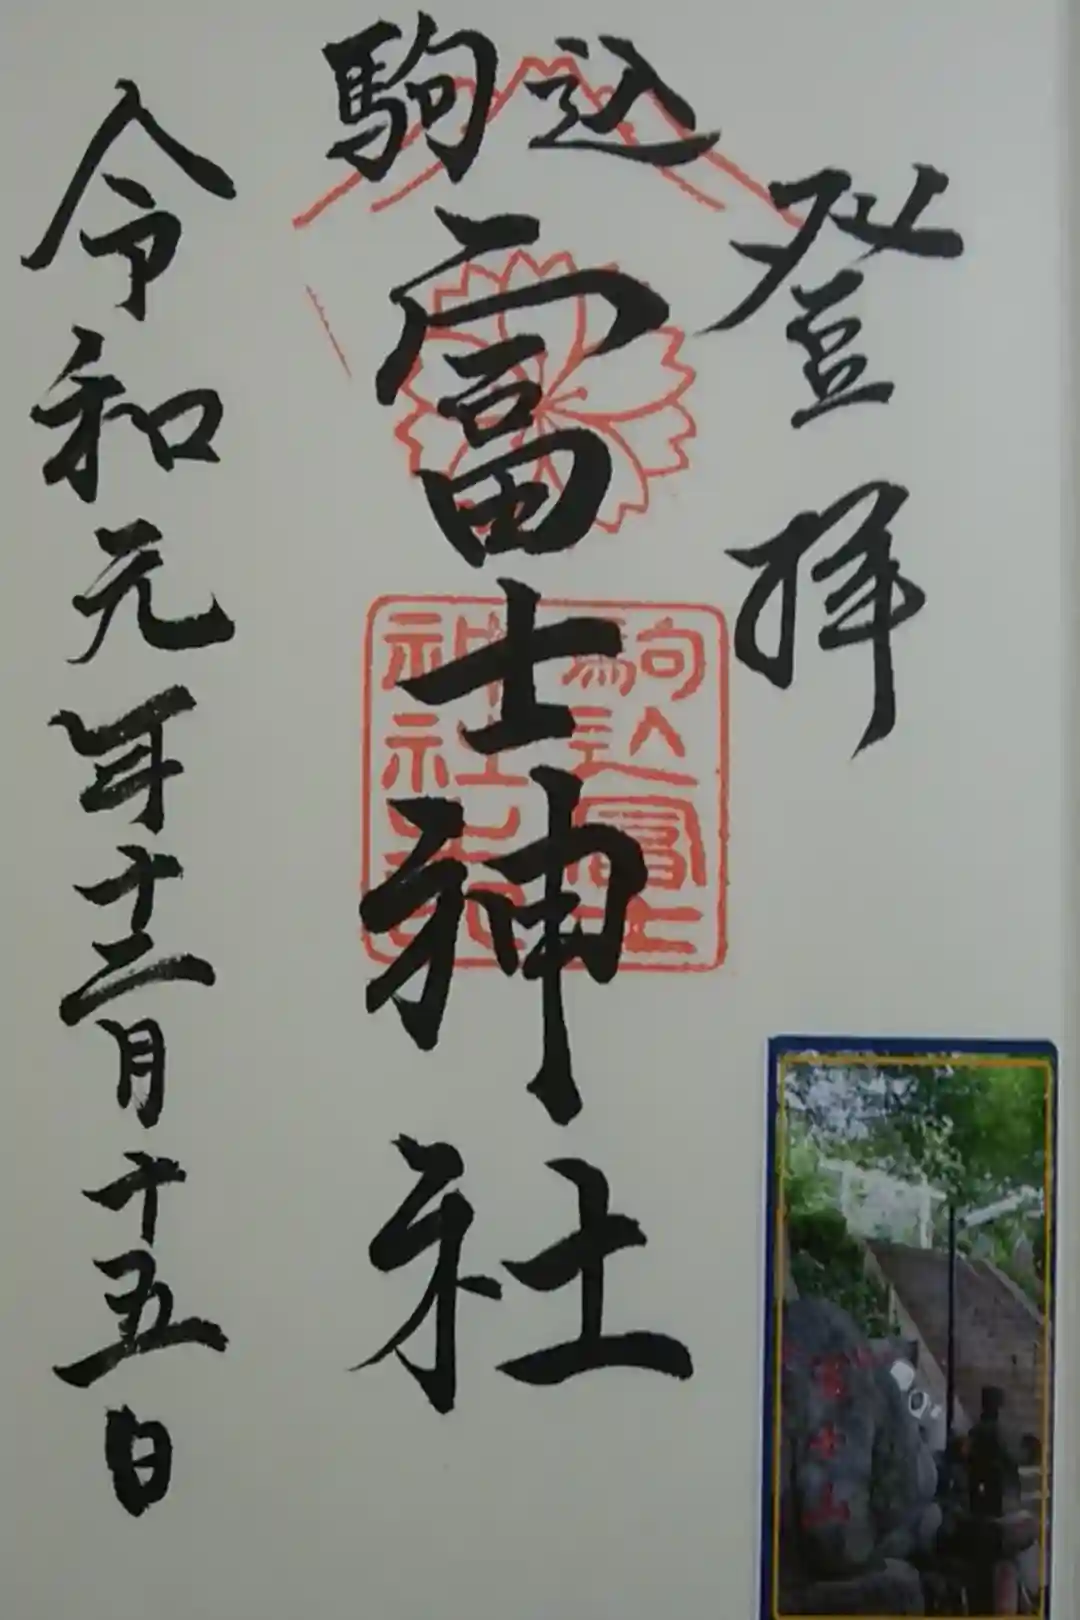 登拝
駒込
富士神社
令和元年十二月十五日
駒込富士
神社
富士山